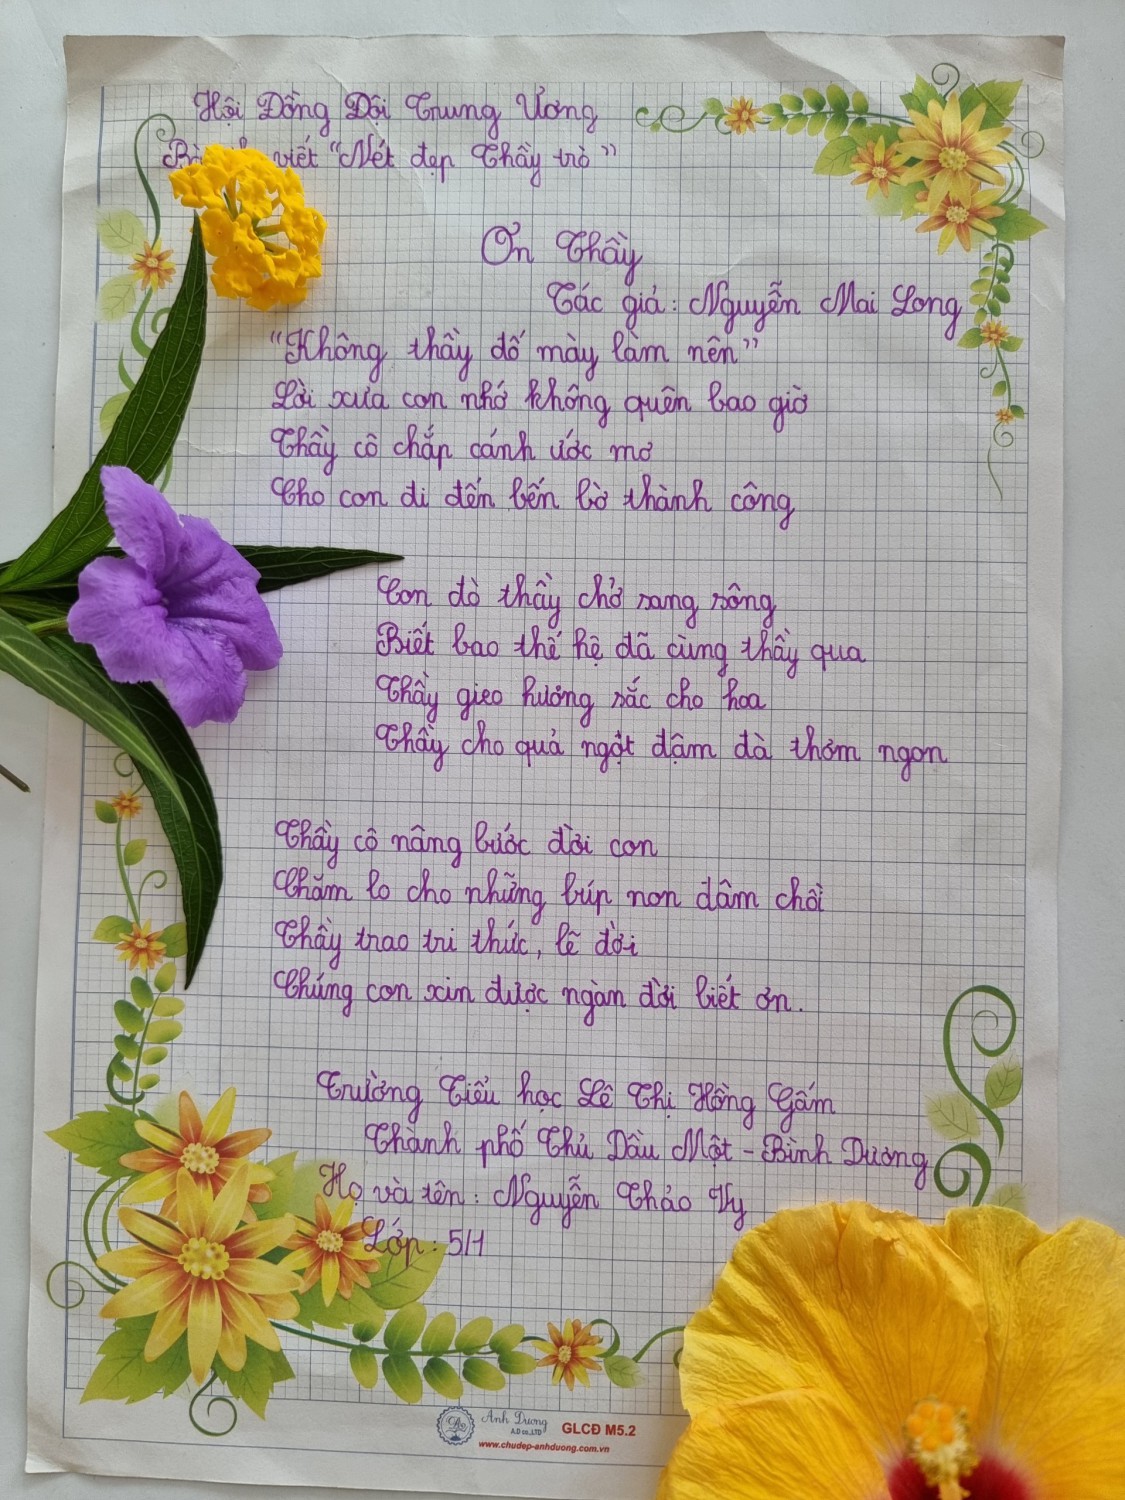 Hội Đồng Đội Trung Ương
viết "Nét đẹp Thầy trò"
Ơn Thầy
Tác giả: Nguyễn Mai Long
"Không thầy đố mày làm nên"
Lời xưa con nhớ không quên bao giờ
Thầy cô chắp cánh ước mơ
Cho con đi đến bến bờ thành công
Con đò thầy chở sang sông
Biết bao thế hệ đã cùng thầy qua
Thầy gieo hương sắc cho hoa
Thầy cho quả ngọt đậm đà thơm ngon
Thầy cô nâng bước đời con
Chăm lo cho những búp non đâm chồi
Thầy trao tri thức, lẽ đời
Chúng con xin được ngàn đời biết ơn.
Trường Tiểu học Lê Thị Hồng Gấm
Thành phố Thủ Dầu Một - Bình Dương
Họ và tên: Nguyễn Thảo Vy
Lớp: 5/1
Anh Dương
A.D co.,LTD
GLCĐ M5.2
www.chudep-anhduong.com.vn